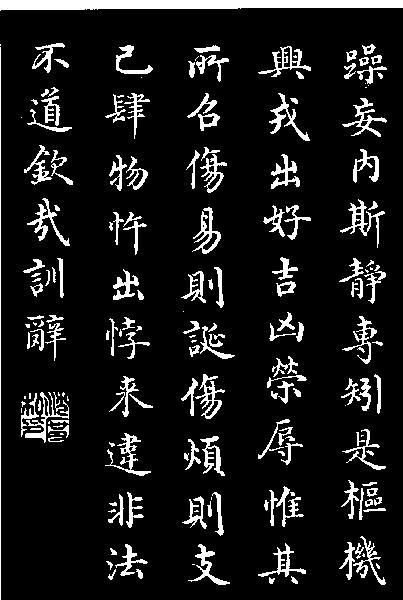 躁妄内斯靜專矧是樞機
興戎出好吉凶榮辱惟其
所召傷易則誕傷煩則支
己肆物忤出悖来違非法
不道欽哉訓辭